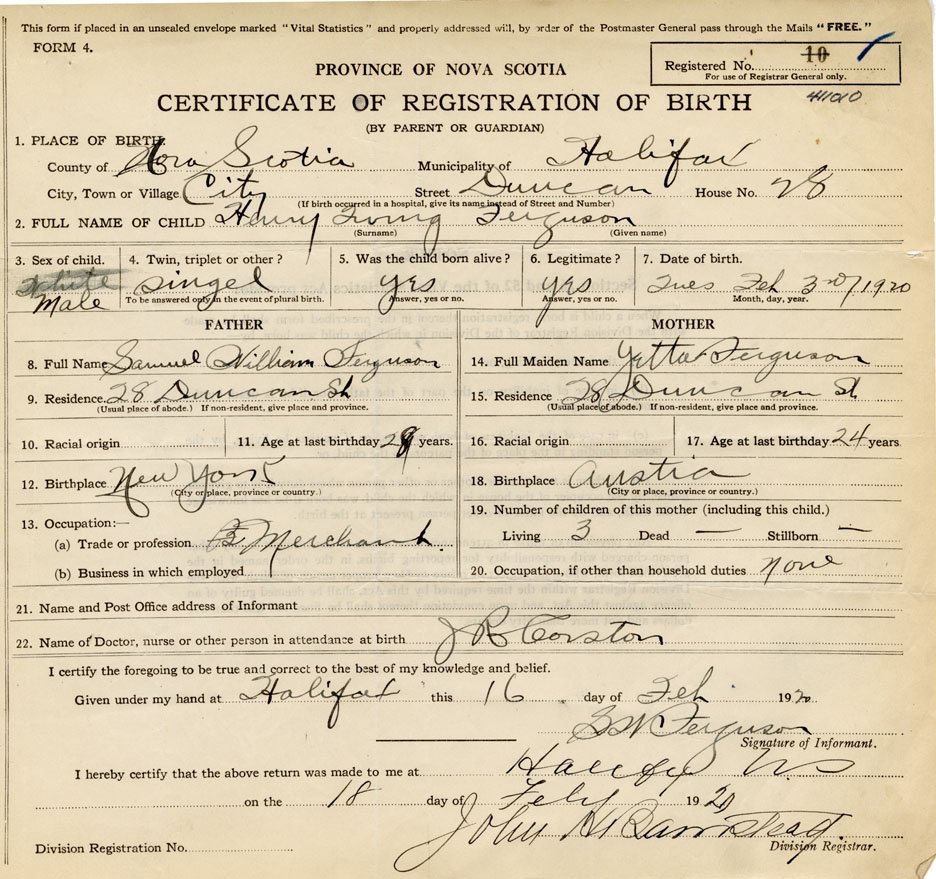 This form if placed in an unsealed envelope marked "Vital Statistics" and properly addressed will, by order of the Postmaster General pass through the Mails "FREE."
FORM 4.
10
Registered No.
For use of Registrar General only.
PROVINCE OF NOVA SCOTIA
CERTIFICATE OF REGISTRATION OF BIRTH
(BY PARENT OR GUARDIAN)
1. PLACE OF BIRTH:
County of Nova Scotia Municipality of Halifax
City, Town or Village City Street Duncan House No. 28
(If birth occurred in a hospital, give its name instead of Street and Number)
2. FULL NAME OF CHILD Henry Irving Ferguson
(Surname) (Given name)
3. Sex of child. 4. Twin, triplet or other? 5. Was the child born alive? 6. Legitimate? 7. Date of birth.
White Male singel yes yes Tues Feb 3rd/1920
To be answered only in the event of plural birth. Answer, yes or no. Answer, yes or no. Month, day, year.
FATHER
8. Full Name Samuel William Ferguson
9. Residence 28 Duncan St
(Usual place of abode.) If non-resident, give place and province.
10. Racial origin 11. Age at last birthday 29 years.
12. Birthplace New York
(City or place, province or country.)
13. Occupation:—
(a) Trade or profession B Merchant.
(b) Business in which employed
MOTHER
14. Full Maiden Name Yetta Ferguson
15. Residence 28 Duncan St
(Usual place of abode.) If non-resident, give place and province.
16. Racial origin 17. Age at last birthday 24 years.
18. Birthplace Austria
(City or place, province or country.)
19. Number of children of this mother (including this child.)
Living 3 Dead — Stillborn —
20. Occupation, if other than household duties none
21. Name and Post Office address of Informant
22. Name of Doctor, nurse or other person in attendance at birth J R Corston
I certify the foregoing to be true and correct to the best of my knowledge and belief.
Given under my hand at Halifax this 16 day of Feb 1920
S W Ferguson
Signature of Informant.
I hereby certify that the above return was made to me at Halifax N S
on the 18 day of Feby 1920
John H Barnstead.
Division Registration No. Division Registrar.